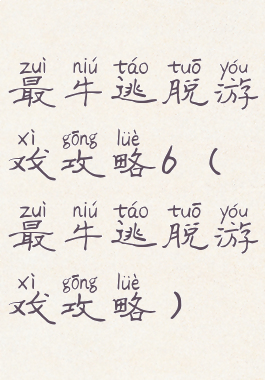 zuì niú táo tuō yóu
最牛逃脱游
xì gōng lüè
戏攻略6（
zuì niú táo tuō yóu
最牛逃脱游
xì gōng lüè
戏攻略）